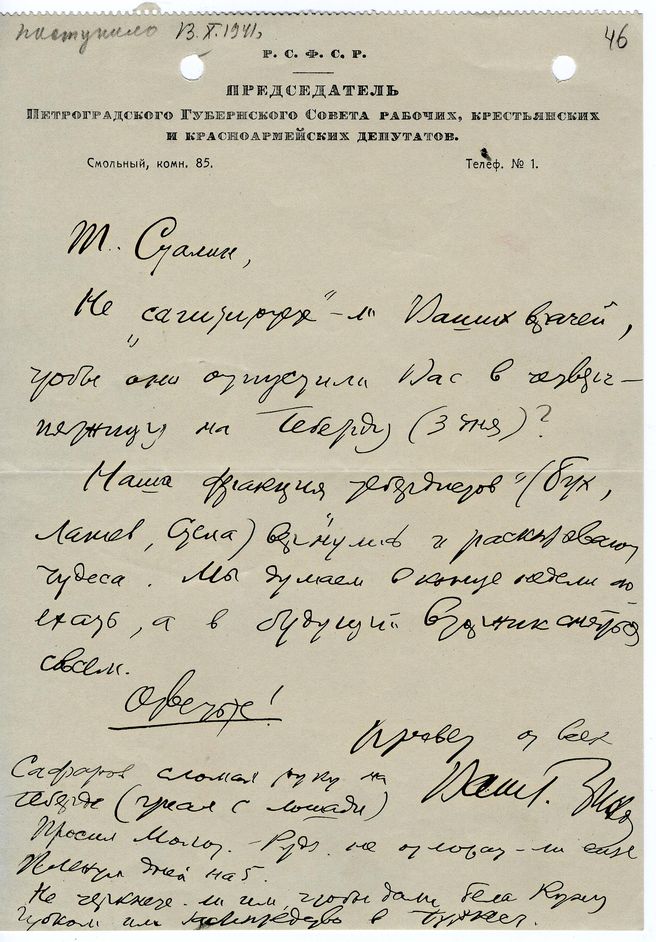 поступило 13.X.1941.
46
Р. С. Ф. С. Р.
ПРЕДСЕДАТЕЛЬ
ПЕТРОГРАДСКОГО ГУБЕРНСКОГО СОВЕТА РАБОЧИХ, КРЕСТЬЯНСКИХ
И КРАСНОАРМЕЙСКИХ ДЕПУТАТОВ.
Смольный, комн. 85. Телеф. № 1.
Т. Сталин,
Не „сагитируете"-ли Ваших врачей,
чтобы они отпустили Вас в четверг—
пятницу на Теберду (3 дня)?
Наша фракция „тебердистов" (Бух,
Лашев,) вернулись и рассказывают
чудеса. Мы думаем в конце недели по
ехать, а в будущий вторник сняться
совсем.
Ответьте!
Привет от всех
Ваш Г.
Сафаров сломал руку на
Теберде (упал с лошади)
Просил Молот. - не отложат-ли еще
Пленум дней на 5.
Не черкнете-ли им, чтобы дали Бела Куну
в